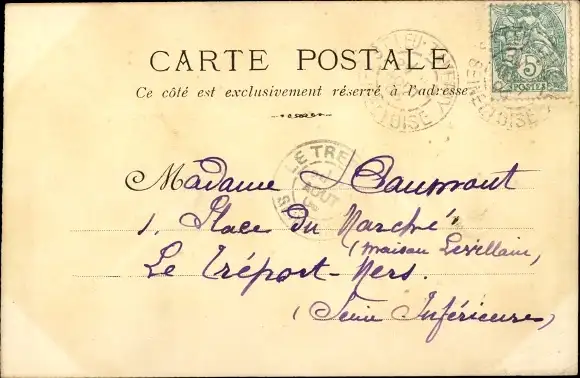 CARTE POSTALE
Ce côté est exclusivement réservé à l'adresse
5c
POSTES
SEINE-ET-OISE
LE TRE
AOUT
Madame Caumont
1, Place du Marché
(maison Levillain,
Le Tréport-Mers.
(Seine Inférieure)